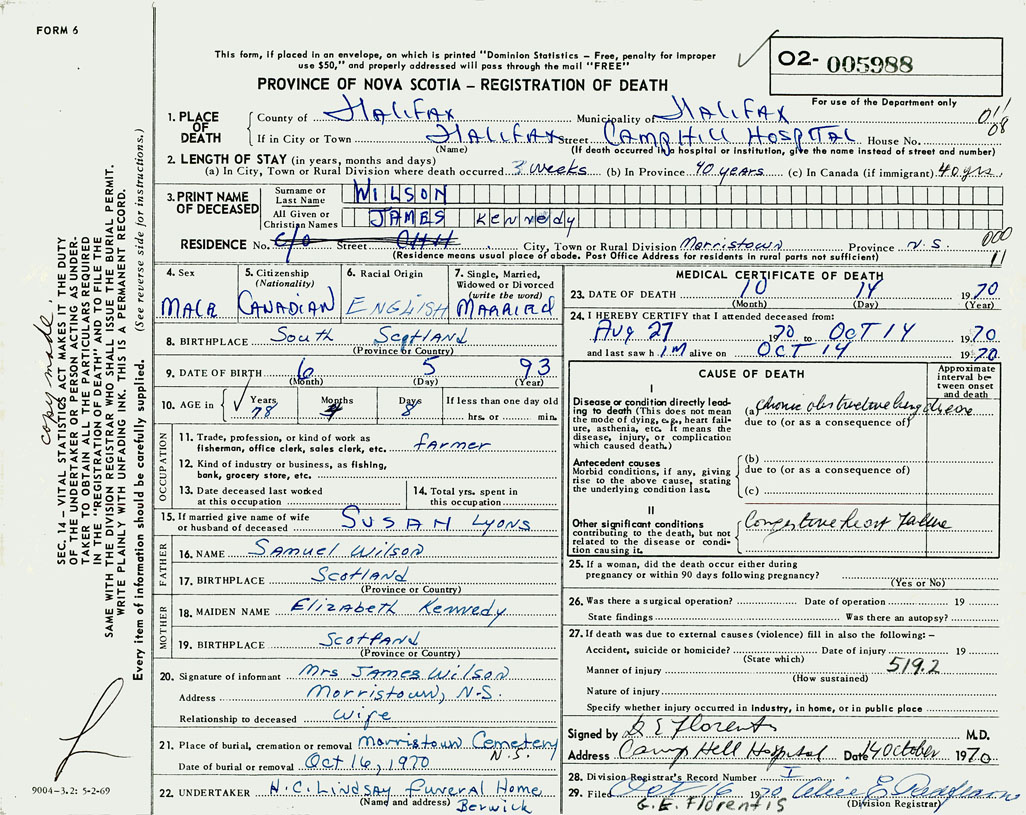 FORM 6
This form, if placed in an envelope, on which is printed "Dominion Statistics – Free, penalty for improper
use $50," and properly addressed will pass through the mail "FREE"
O2- 005988
PROVINCE OF NOVA SCOTIA – REGISTRATION OF DEATH
For use of the Department only
1. PLACE OF DEATH County of HALIFAX Municipality of HALIFAX 011
If in City or Town HALIFAX Street CAMP HILL HOSPITAL House No. 08
(Name) (If death occurred in a hospital or institution, give the name instead of street and number)
2. LENGTH OF STAY (in years, months and days)
(a) In City, Town or Rural Division where death occurred 3 weeks (b) In Province 40 years (c) In Canada (if immigrant) 40 yrs.
3. PRINT NAME OF DECEASED Surname or Last Name WILSON
All Given or Christian Names JAMES Kennedy
RESIDENCE No. c/o Street CHH City, Town or Rural Division Morristown Province N.S. 000
(Residence means usual place of abode. Post Office Address for residents in rural parts not sufficient) 11
4. Sex MALE
5. Citizenship (Nationality) CANADIAN
6. Racial Origin ENGLISH
7. Single, Married, Widowed or Divorced (write the word) MARRIED
8. BIRTHPLACE South Scotland
(Province or Country)
9. DATE OF BIRTH 6 5 93
(Month) (Day) (Year)
10. AGE in Years 78 Months 4 Days 8 If less than one day old
hrs. or min.
OCCUPATION
11. Trade, profession, or kind of work as
fisherman, office clerk, sales clerk, etc. farmer
12. Kind of industry or business, as fishing,
bank, grocery store, etc.
13. Date deceased last worked
at this occupation
14. Total yrs. spent in
this occupation
15. If married give name of wife
or husband of deceased SUSAN Lyons
FATHER
16. NAME Samuel Wilson
17. BIRTHPLACE Scotland
(Province or Country)
MOTHER
18. MAIDEN NAME Elizabeth Kennedy
19. BIRTHPLACE Scotland
(Province or Country)
20. Signature of informant Mrs James Wilson
Address Morristown, N.S.
Relationship to deceased wife
21. Place of burial, cremation or removal Morristown Cemetery
N.S.
Date of burial or removal Oct 16, 1970
22. UNDERTAKER H.C. LINDSAY Funeral Home
(Name and address) Berwick
MEDICAL CERTIFICATE OF DEATH
23. DATE OF DEATH 10 14 1970
(Month) (Day) (Year)
24. I HEREBY CERTIFY that I attended deceased from:
Aug 27 1970 to OCT 14 1970
and last saw h IM alive on OCT 14 1970
CAUSE OF DEATH
Approximate interval between onset and death
I
Disease or condition directly leading to death (This does not mean the mode of dying, e.g., heart failure, asthenia, etc. It means the disease, injury, or complication which caused death.)
(a) Chronic obstructive lung disease
due to (or as a consequence of)
Antecedent causes
Morbid conditions, if any, giving rise to the above cause, stating the underlying condition last.
(b)
due to (or as a consequence of)
(c)
II
Other significant conditions
contributing to the death, but not related to the disease or condition causing it.
Congestive heart failure
25. If a woman, did the death occur either during
pregnancy or within 90 days following pregnancy?
(Yes or No)
26. Was there a surgical operation? Date of operation 19
State findings Was there an autopsy?
27. If death was due to external causes (violence) fill in also the following: –
Accident, suicide or homicide? Date of injury 19
(State which)
Manner of injury 519.2
(How sustained)
Nature of injury
Specify whether injury occurred in industry, in home, or in public place
Signed by D E Florentis M.D.
Address Camp Hill Hospital Date 14 October 1970
28. Division Registrar's Record Number I
29. Filed Oct 16 1970
G. E. Florentis (Division Registrar)
copy made.
SEC. 14 – VITAL STATISTICS ACT MAKES IT THE DUTY
OF THE UNDERTAKER OR PERSON ACTING AS UNDER-
TAKER TO OBTAIN ALL THE PARTICULARS REQUIRED
IN THE "REGISTRATION OF DEATH" AND TO FILE THE
SAME WITH THE DIVISION REGISTRAR WHO SHALL ISSUE THE BURIAL PERMIT.
WRITE PLAINLY WITH UNFADING INK. THIS IS A PERMANENT RECORD.
Every item of information should be carefully supplied. (See reverse side for instructions.)
9004-3.2: 5-2-69